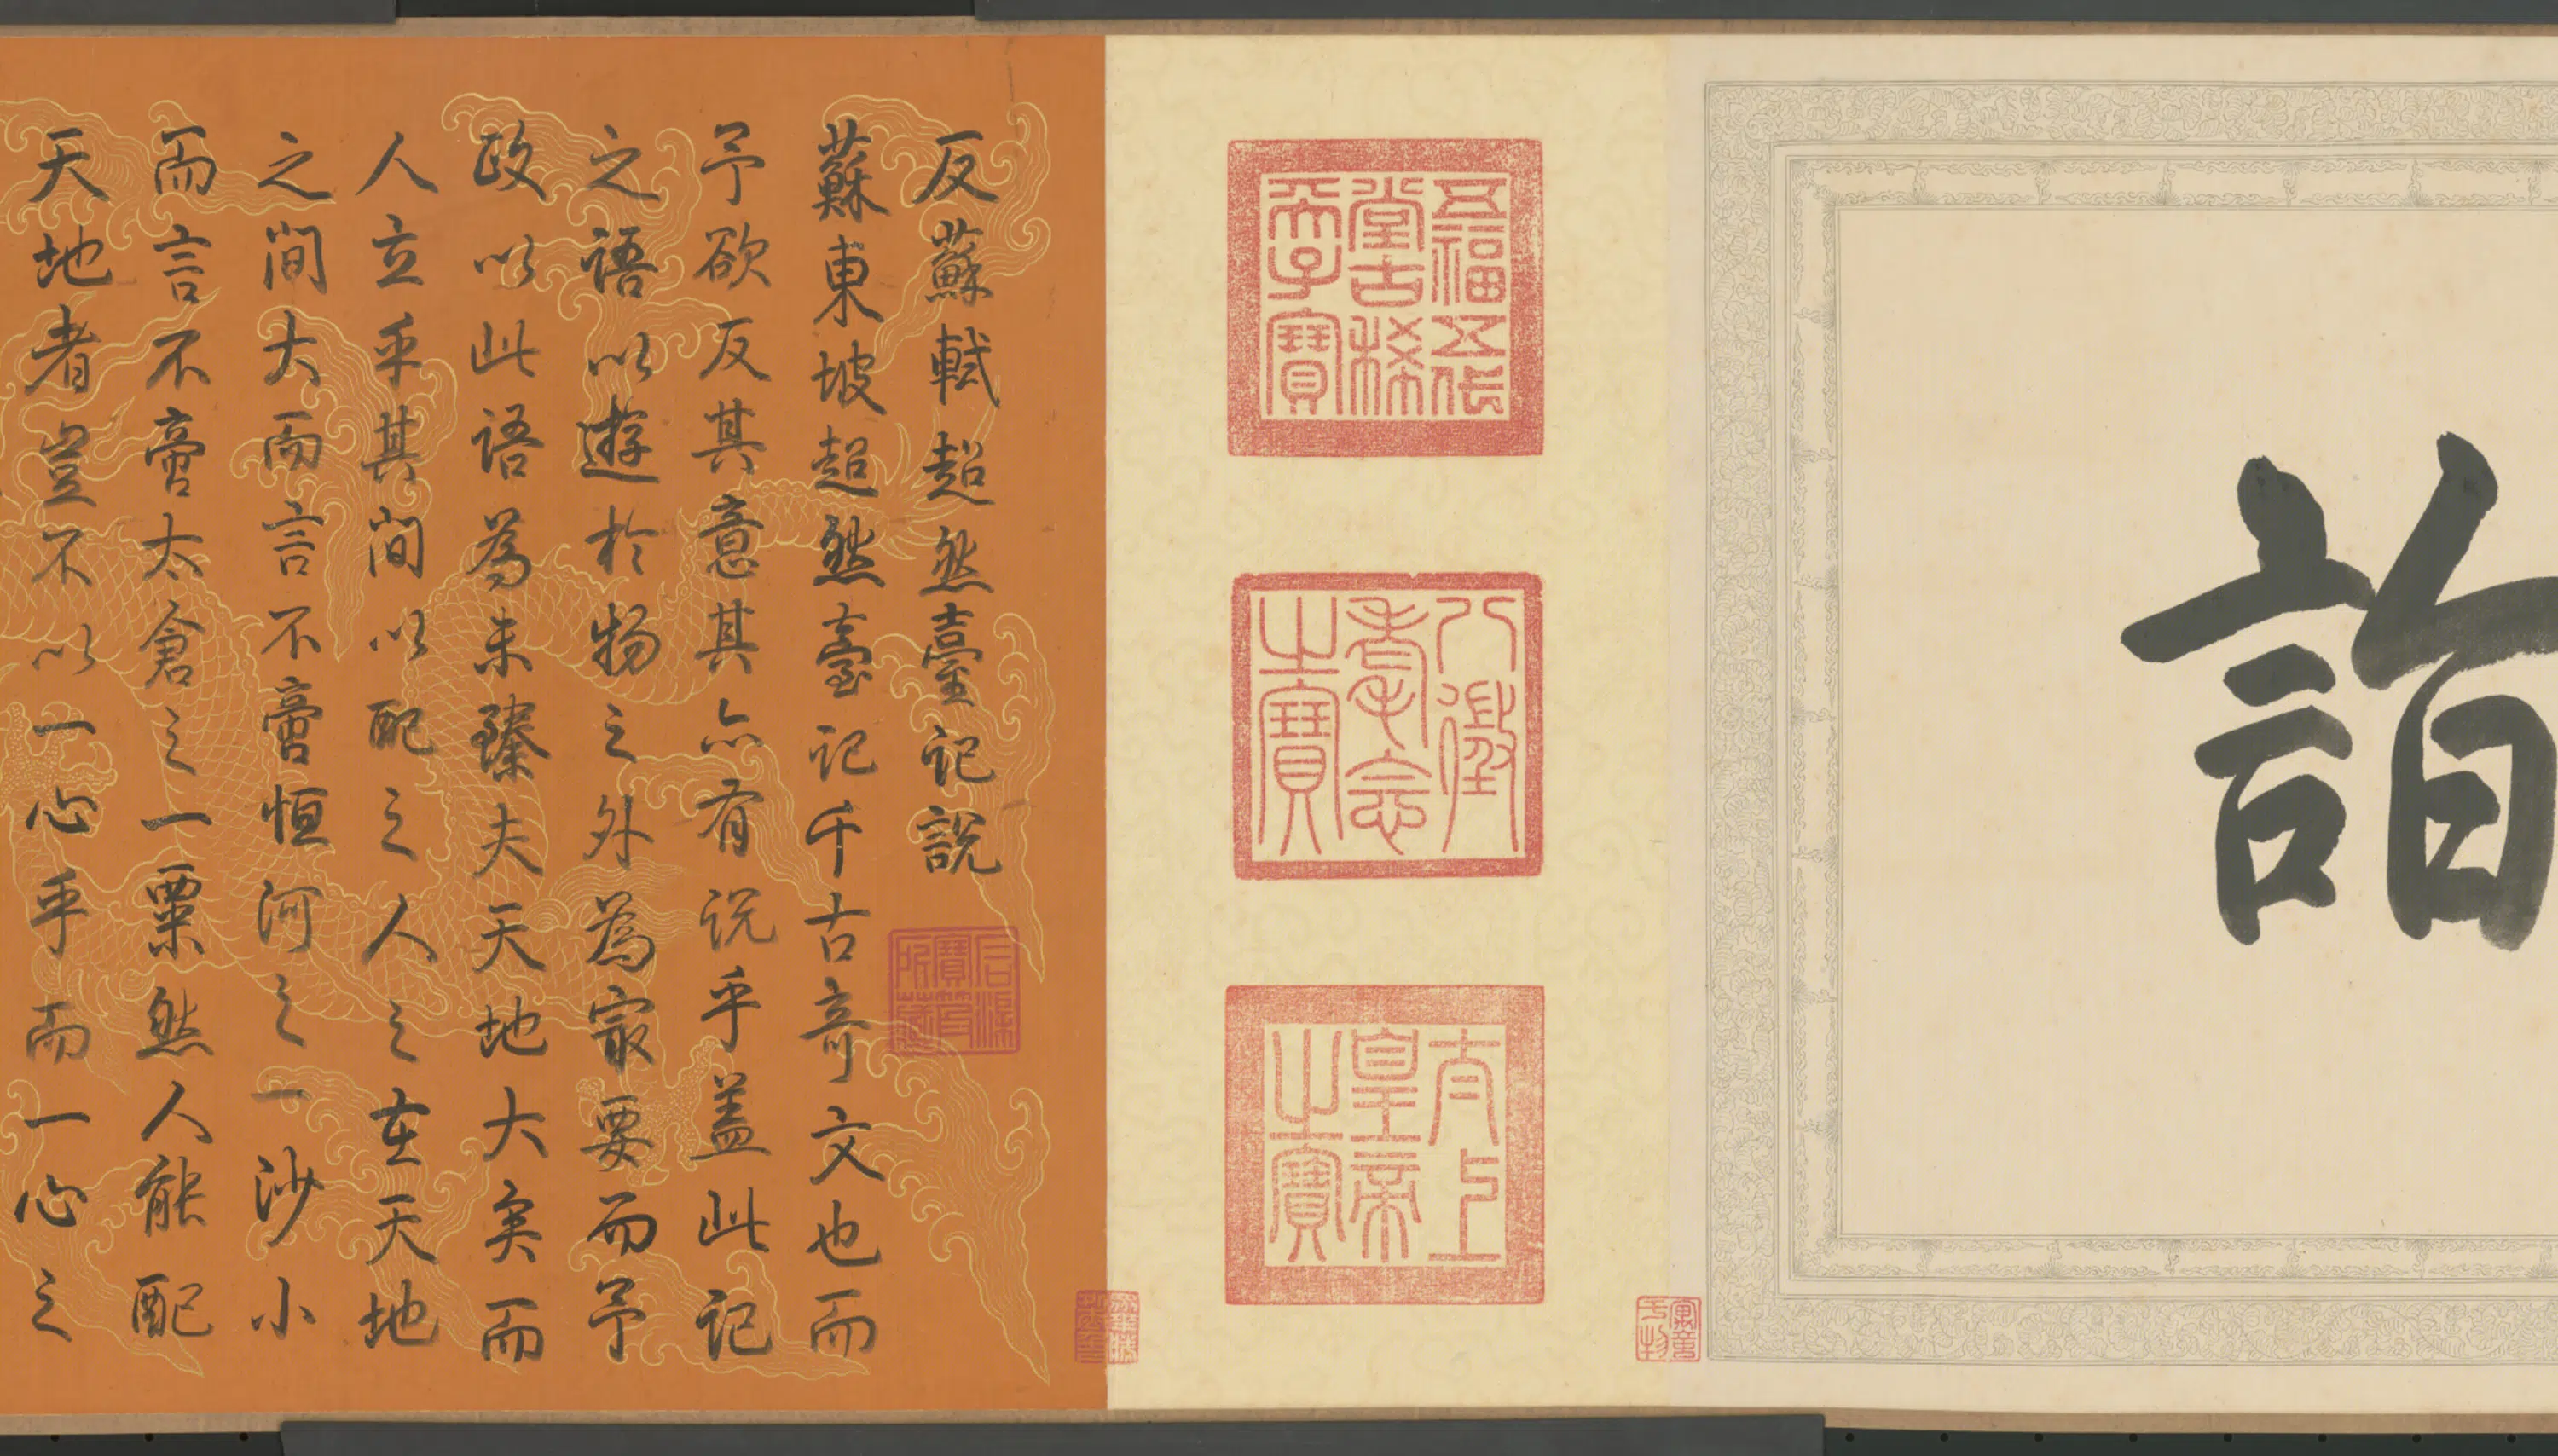 詣
五福五代
堂古稀
天子寶
八徵
耄念
之寶
太上
皇帝
之寶
寓意
于物
反蘇軾超然臺記說
石渠
寶笈
所藏
蘇東坡超然臺記千古奇文也而
予欲反其意其亦有說乎盖此記
之語以遊於物之外為最要而予
政以此語為未臻夫天地大矣而
人立乎其間以配之人之在天地
之間大而言不啻恒河之一沙小
而言不啻太倉之一粟然人能配
天地者豈不以一心乎而一心之